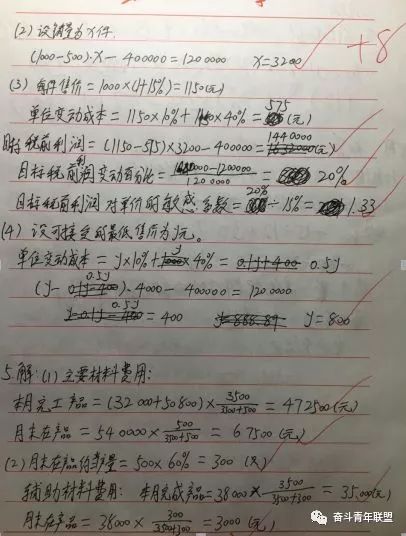 (2) 设销量为X件.
(1000-500)·x - 400000 = 1200000 x=3200
+8
(3) 每件售价 = 1000×(1+15%) = 1150(元)
单位变动成本 = 1150×10% + 1150×40% = 575(元)
目标税前利润 = (1150-575)×3200-400000 = 1440000(元)
目标税前利润变动百分比 = 1440000-1200000/1200000 = 20%
目标税前利润对单价的敏感系数 = 20%÷15% = 1.33
(4) 设可接受的最低售价为y元。
单位变动成本 = y×10%+y×40% = 0.5y
(y-0.5y)·4000-400000 = 1200000
0.5y = 400 y=800
5.解:(1) 主要材料费用:
本月完工产品 = (32000+50800)× 3500/3500+500 = 472500(元)
月末在产品 = 540000× 500/3500+500 = 67500(元)
(2) 月末在产品约当产量 = 500×60% = 300(只)
辅助材料费用: 本月完成产品=38000× 3500/3500+300 = 35000(元)
月末在产品 = 38000× 300/3500+300 = 3000(元)
奋斗青年联盟